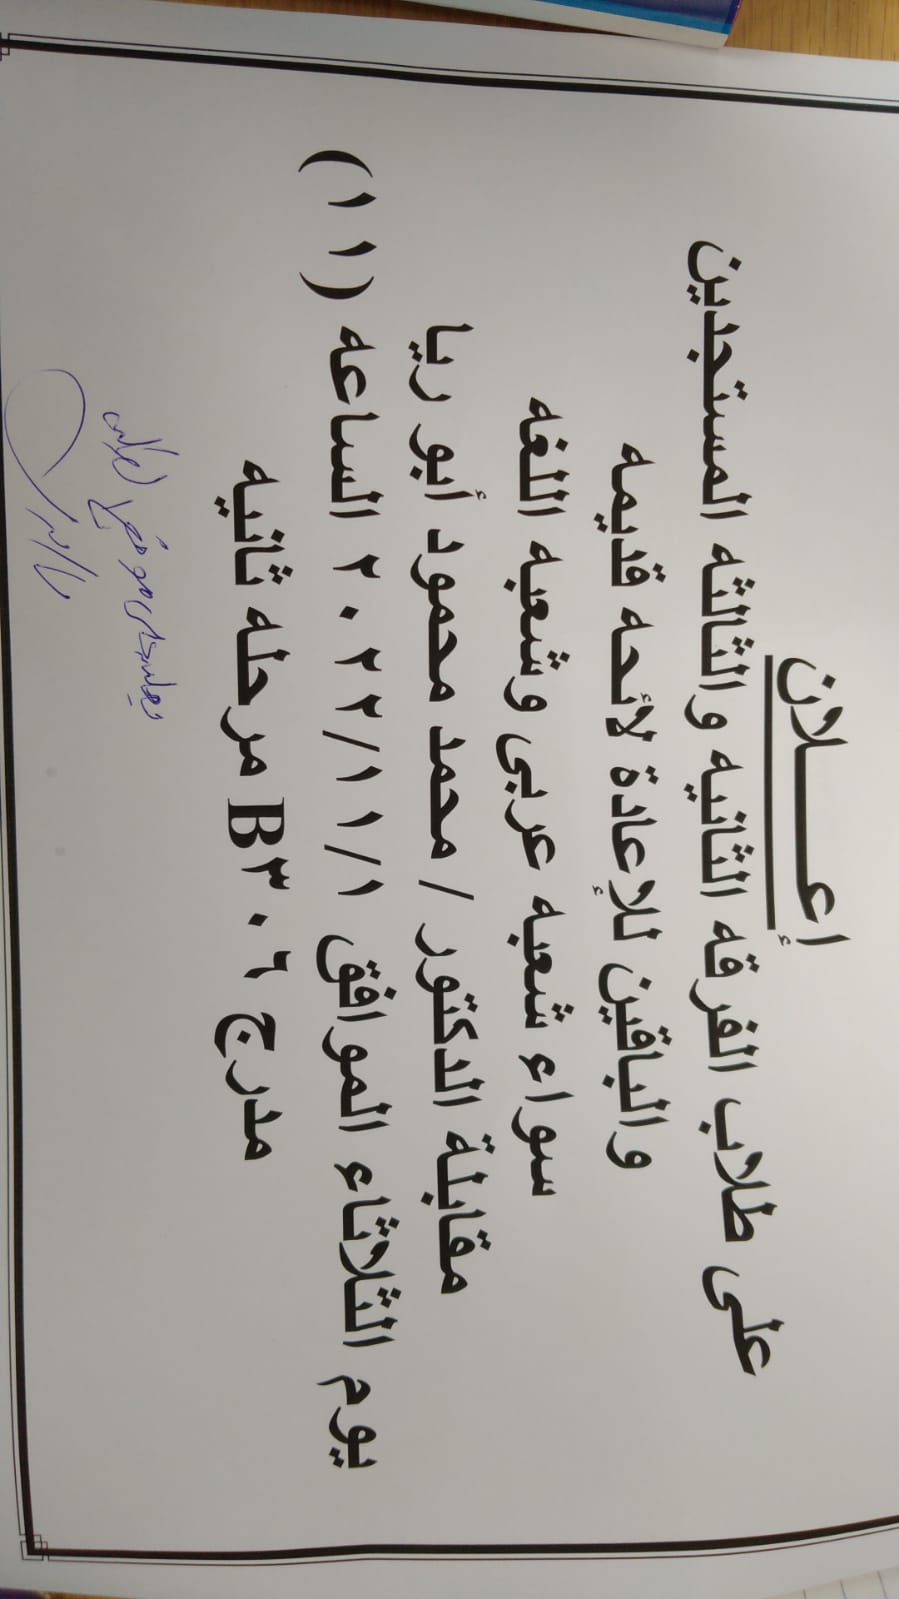 إعـــلان
على طلاب الفرقه الثانيه والثالثه المستجدين
والباقين للإعادة لائحه قديمه
سواء شعبه عربى وشعبه اللغه
مقابلة الدكتور / محمد محمود أبو ريا
يوم الثلاثاء الموافق ٢٠٢٢/١١/١ الساعه (١١)
مدرج B٣٠٦ مرحله ثانيه